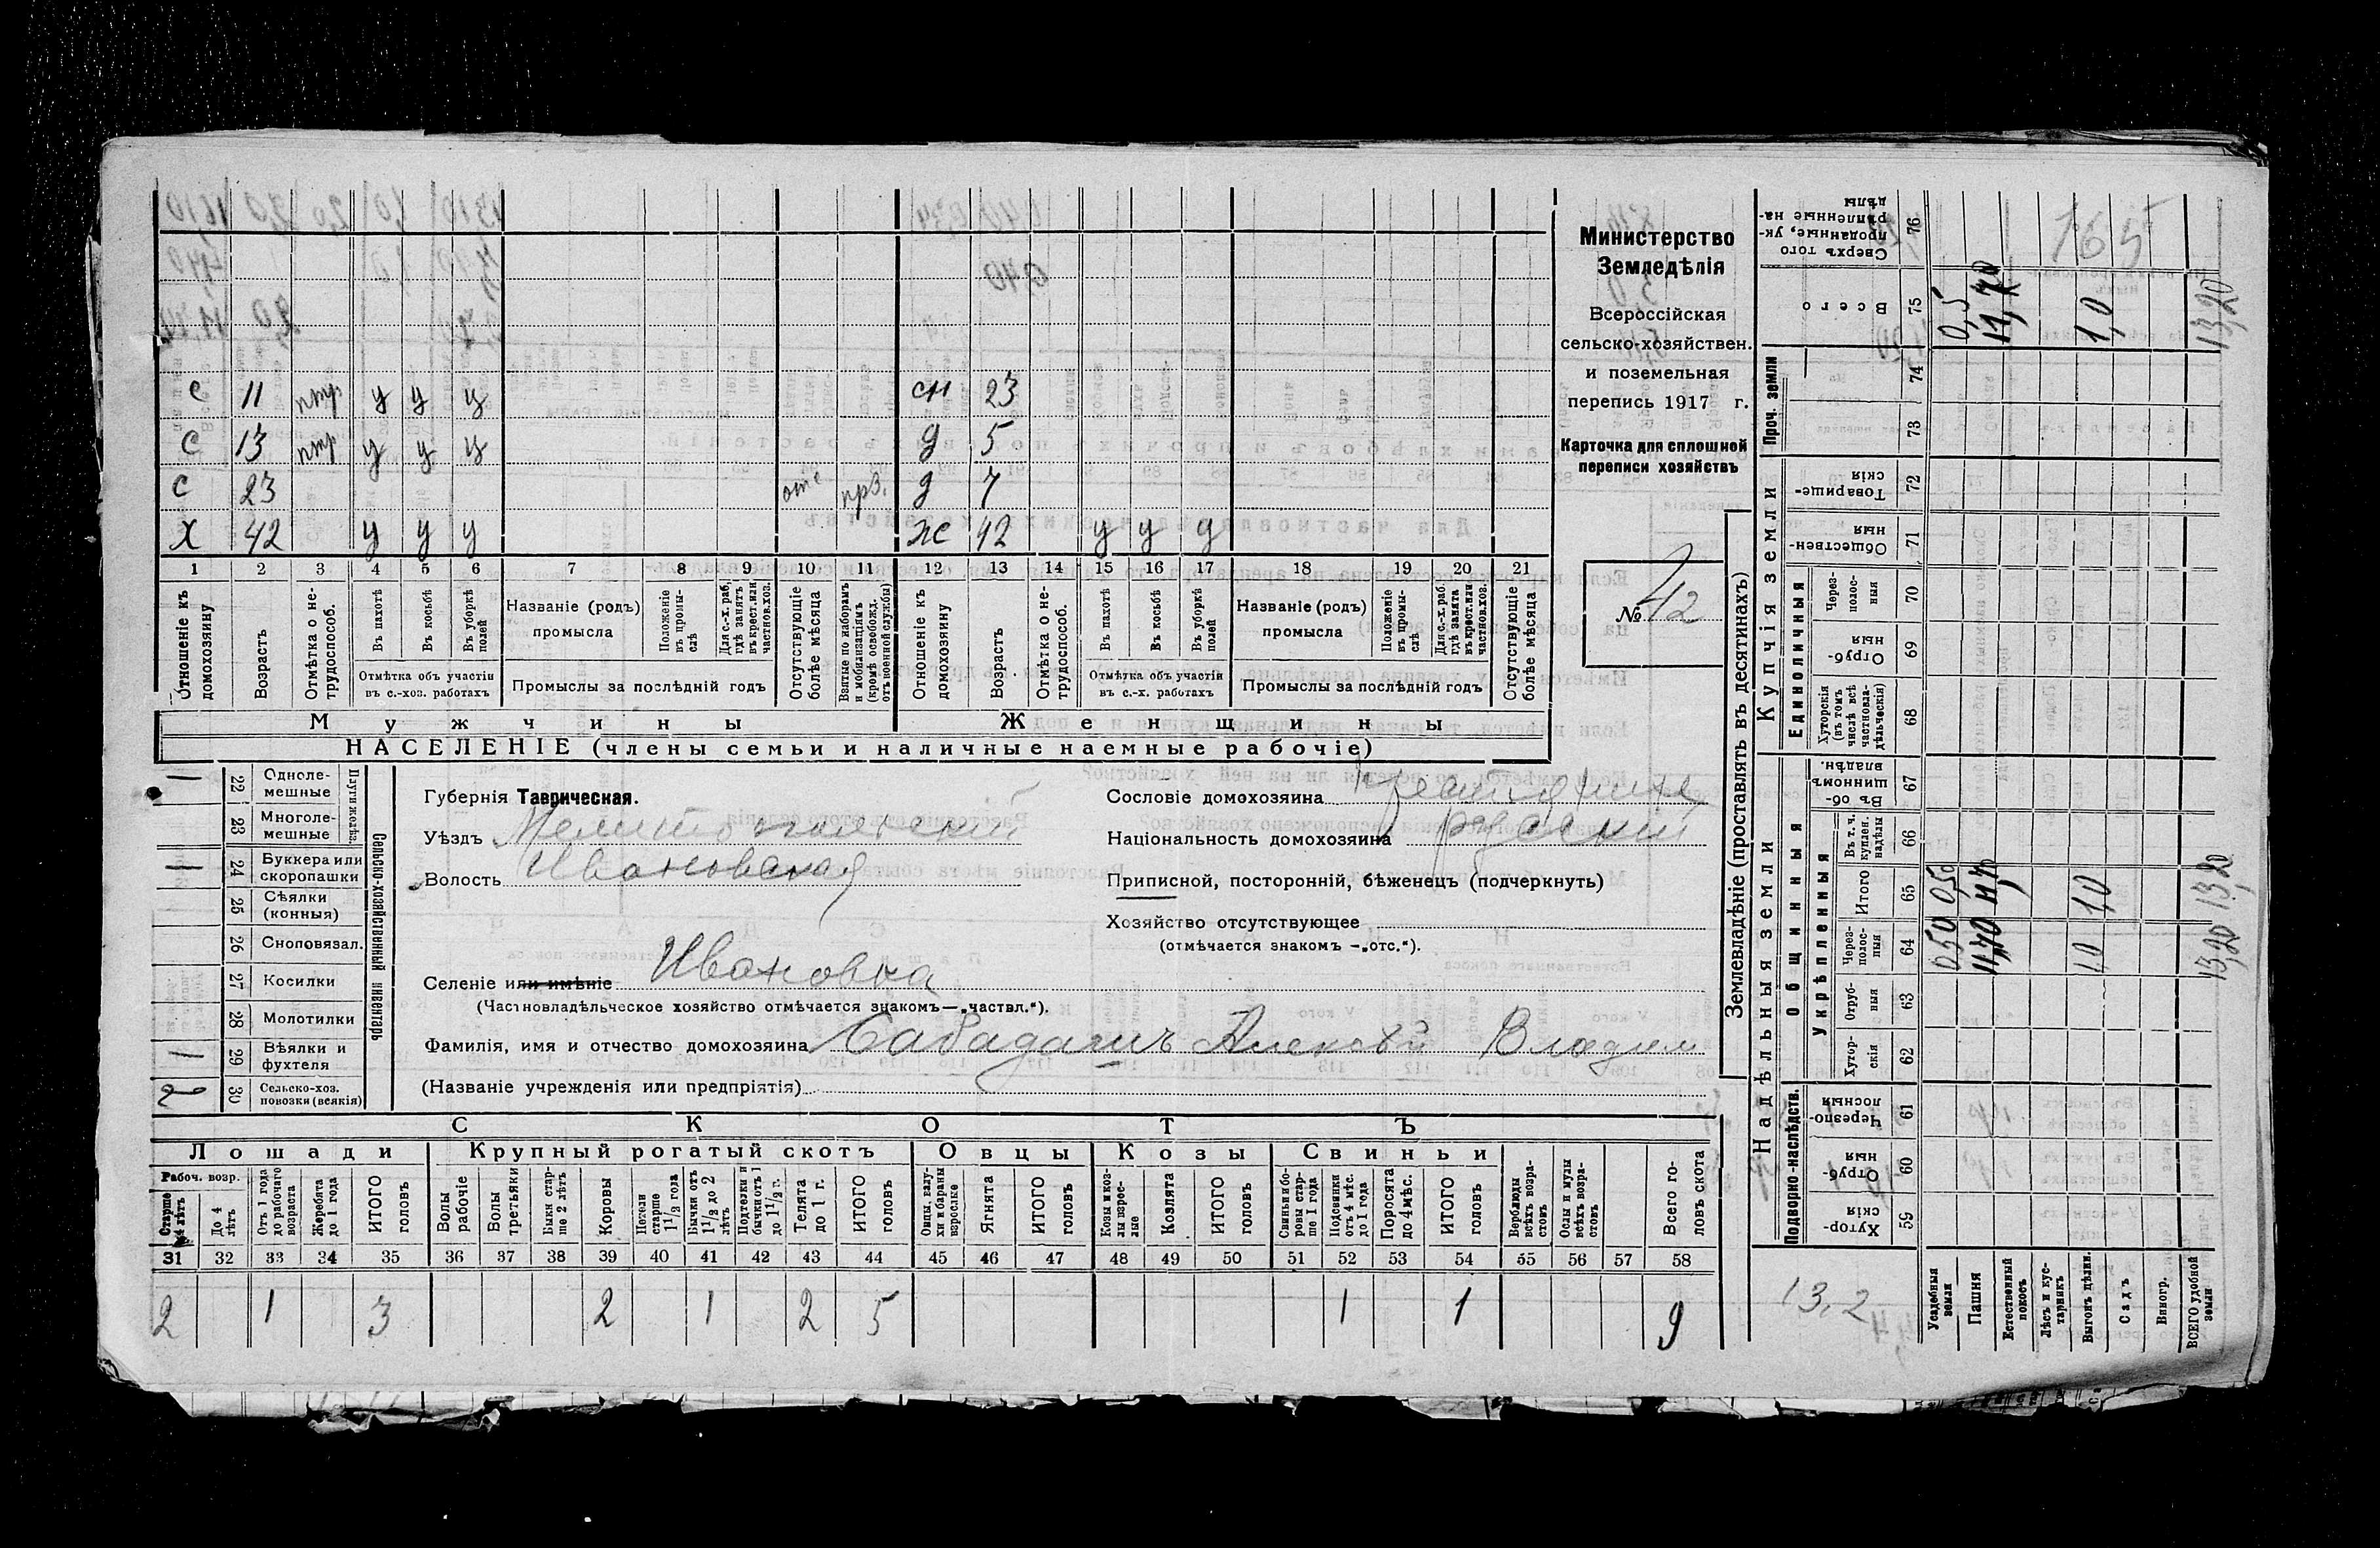 Министерство
Земледѣлія
Всероссійская
сельско-хозяйствен.
и поземельная
перепись 1917 г.
Карточка для сплошной
переписи хозяйствъ
№ 42
С 11 нтр у у у сн 23
С 13 нтр у у у д 5
С 23 отс прз. д 7
Х 42 у у у ж 42 у у у
1 2 3 4 5 6 7 8 9 10 11 12 13 14 15 16 17 18 19 20 21
Отношеніе къ домохозяину
Возрастъ
Отмѣтка о нетрудоспособ.
Въ пахотѣ
Въ косьбѣ
Въ уборкѣ полей
Отмѣтка объ участіи въ с.-хоз. работахъ
Названіе (родъ) промысла
Положеніе въ промыслѣ
Для с.-х. раб. гдѣ занятъ въ крест. или частнов. хоз.
Промыслы за послѣдній годъ
Отсутствующіе болѣе мѣсяца
Взятые по наборамъ и мобилизаціямъ (кромѣ освобожд. отъ военной службы)
Отношеніе къ домохозяину
Возрастъ
Отмѣтка о нетрудоспособ.
Въ пахотѣ
Въ косьбѣ
Въ уборкѣ полей
Отмѣтка объ участіи въ с.-х. работахъ
Названіе (родъ) промысла
Положеніе въ промыслѣ
Для с.-х. раб. гдѣ занята въ крест. или частнов. хоз.
Промыслы за послѣдній годъ
Отсутствующіе болѣе мѣсяца
Мужчины Женщины
НАСЕЛЕНІЕ (члены семьи и наличные наемные рабочіе)
Сельско-хозяйственный инвентарь
1 22 Однолемешные
23 Многолемешные
1 24 Буккера или скоропашки
25 Сѣялки (конныя)
26 Сноповязал.
27 Косилки
28 Молотилки
1 29 Вѣялки и фухтеля
2 30 Сельско-хоз. повозки (всякія)
Губернія Таврическая.
Уѣздъ Мелитопольский
Волость Ивановская
Сословіе домохозяина крестьянинъ
Національность домохозяина русский
Приписной, посторонній, бѣженецъ (подчеркнуть)
Хозяйство отсутствующее
(отмѣчается знакомъ —„отс.“).
Селеніе или имѣніе Ивановка
(Частновладѣльческое хозяйство отмѣчается знакомъ—„частвл.“).
Фамилія, имя и отчество домохозяина Сабадашъ Алексѣй Владим
(Названіе учрежденія или предпріятія)
СКОТЪ
Лошади Крупный рогатый скотъ Овцы Козы Свиньи
Рабоч. возр.
Старше 4 лѣтъ
До 4 лѣтъ
Отъ 1 года до рабочаго возраста
Жеребята до 1 года
ИТОГО головъ
Волы рабочіе
Волы третьяки
Быки старше 2 лѣтъ
Коровы
Нетели старше 1 1/2 года
Бычки отъ 1 1/2 до 2 лѣтъ
Подтелки и бычки отъ 1 до 1 1/2 г.
Телята до 1 г.
ИТОГО головъ
Овцы, валухи и бараны взрослые
Ягнята
ИТОГО головъ
Козы и козлы взрослые
Козлята
ИТОГО головъ
Свиньи и боровы старше 1 года
Подсвинки отъ 4 мѣс. до 1 года
Поросята до 4 мѣс.
ИТОГО головъ
Верблюды всѣхъ возрастовъ
Ослы и мулы всѣхъ возрастовъ
Всего головъ скота
31 32 33 34 35 36 37 38 39 40 41 42 43 44 45 46 47 48 49 50 51 52 53 54 55 56 57 58
2 1 3 2 1 2 5 1 1 9
Землевладѣніе (проставлять въ десятинахъ)
Надѣльныя земли Купчія земли Проч. земли
Подворно-наслѣдств.
Общинныя
Укрѣпленныя
Единоличныя
59 Хуторскія
60 Отрубныя
61 Черезполосныя
62 Хуторскія
63 Отрубныя
64 Черезполосныя 0,50 11,70 1,0 13,20
65 Итого 0,50 11,70 1,0 13,20
66 Въ т. ч. куплен. надѣлы
67 Въ общинномъ владѣн.
68 Хуторскія (въ томъ числѣ всѣ частновладѣльческія)
69 Отрубныя
70 Черезполосныя
71 Общественныя
72 Товарищескія
73
74
75 Всего 0,5 11,70 1,0 13,20
76 Сверхъ того проданные, укрѣпленные надѣлы
165
13,2
Усадебныя земли
Пашня
Естественный покосъ
Лѣсъ и кустарникъ
Выгонъ цѣлин.
Садъ
Виногр.
ВСЕГО удобной земли